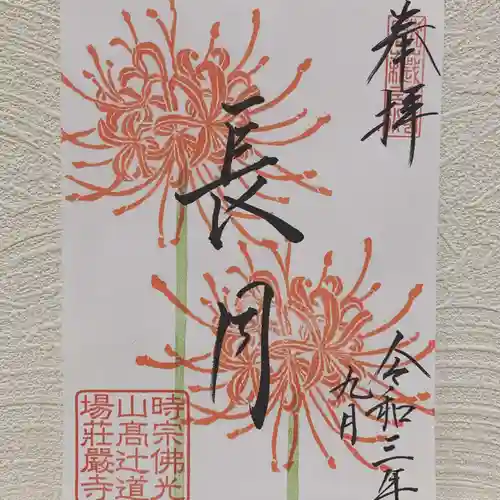 奉拝
長月
令和三年
九月
時宗佛光
山髙辻道
場莊嚴寺